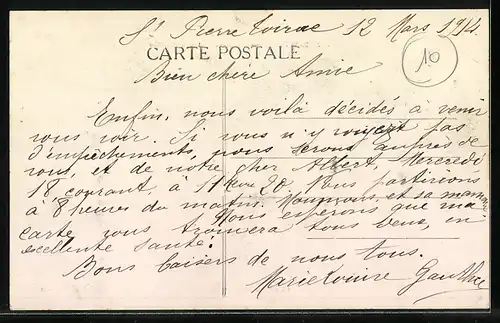 St Pierre Toirac 12 Mars 1914.
10
CARTE POSTALE
Bien chère Amie
Enfin, nous voilà décidés à venir
vous voir. Si vous n'y voyez pas
d'empêchements, nous serons auprès de
vous, et de notre cher Albert, Mercredi
18 courant, à 11 heure 20. Nous partirions
à 8 heures du matin. et sa maman
Nous espérons que ma
carte vous trouvera tous deux, en
excellente santé.
Bons baisers de nous tous.